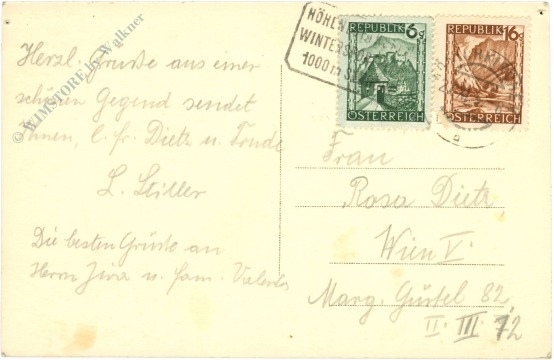 Herzl. Grüße aus einer
schönen Gegend sendet
Ihnen, l. fr. Dietz u. Trude
L. Stiller
Die besten Grüße an
Herrn u. fam.
© WIMSTORE by Walkner
HÖHEN
WINTERS
1000 m S
REPUBLIK 6g
ÖSTERREICH
REPUBLIK 16
ÖSTERREICH
Frau
Rosa Dietz
Wien V.
Marg. Gürtel 82,
II. III. 72